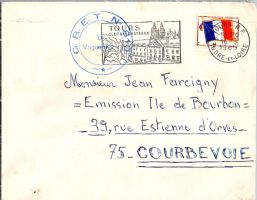 C.R.E.T. N
Le
Vaguemestre
TOURS
1965
INDRE-ET-LOIRE
Monsieur Jean Farcigny
=Emission Ile de Bourbon=
39, rue Estienne d'Orves-
75- COURBEVOIE